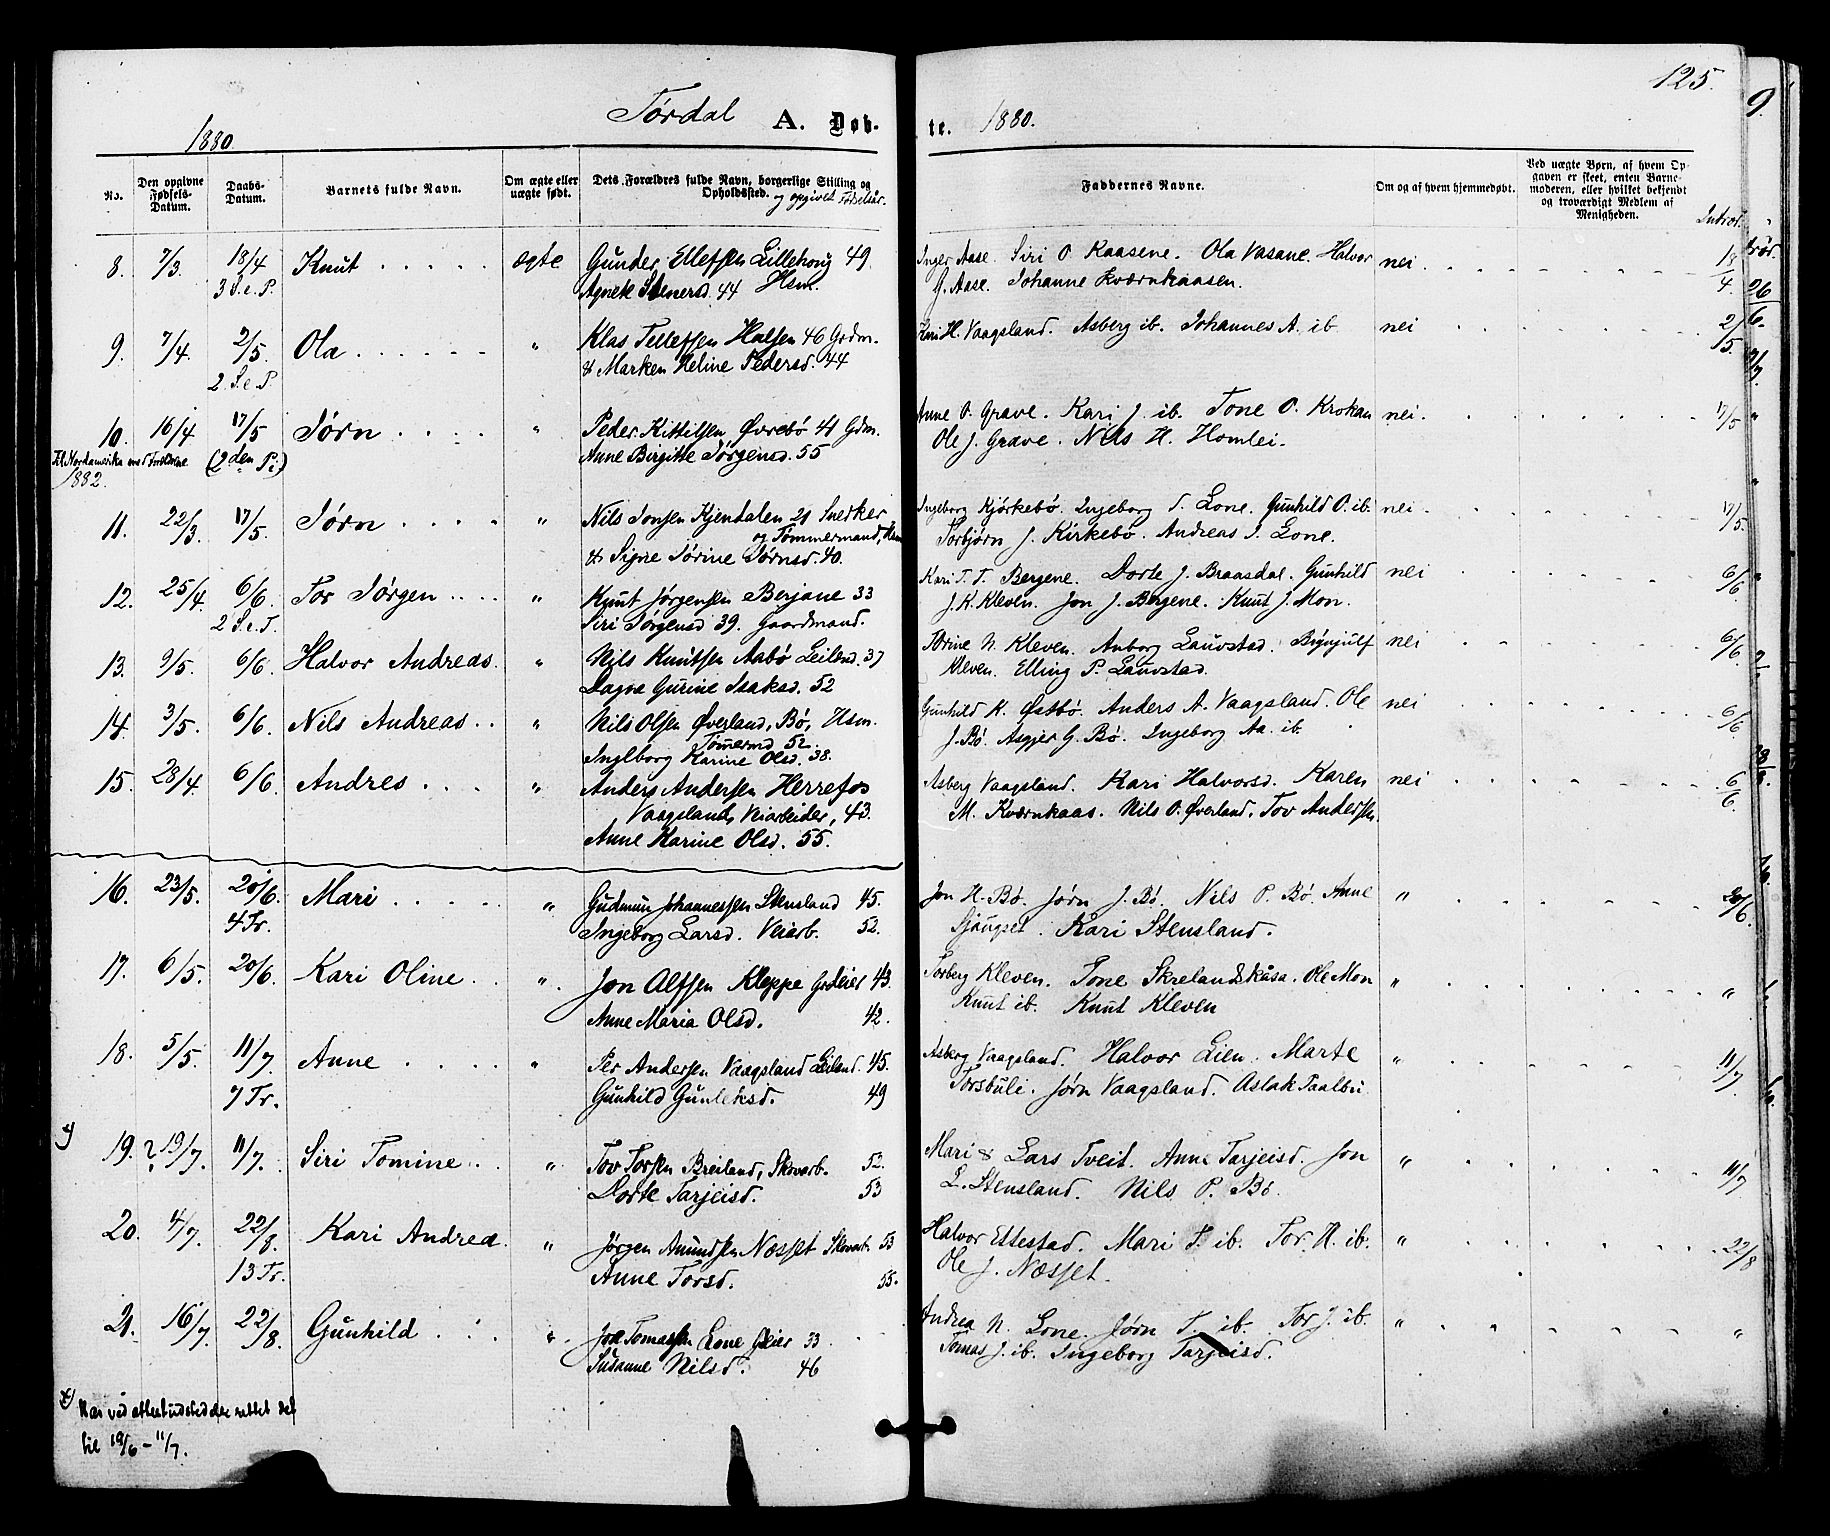 125.
Tørdal A. Døb- te. 1880.
1880
No. Den opgivne Fødsels-Datum. Daabs-Datum. Barnets fulde Navn. Om ægte eller uægte født. Dets Forældres fulde Navn, borgerlige Stilling og Opholdssted. og opgivet Fødselsår. Faddernes Navne. Om og af hvem hjemmedøbt. Ved uægte Børn, af hvem Opgaven er skeet, enten Barnemoderen, eller hvilket bekjendt og troværdigt Medlem af Menigheden. Introd.
8. 7/3. 18/4 Knut ægte Gunder Ellefsen Lillehoug 49. Inger Aase. Siri O. Kaasene. Ola Vasane. Halvor nei 18/4
3 S. e. P. Agnete 44 Hsm. J. Aase. Johanne Kværnkaasen.
9. 7/4. 2/5. Ola " Klas Tellefsen Halsen 46 Grdm. Kari H. Vaagsland. Asberg ib. Johannes A. ib nei 2/5.
2. S. e. P. & Marken Heline Pedersd. 44
10. 16/4 17/5 Jørn " Peder Kittilsen Øvrebø 41 Gdm. Anne O. Grave. Kari J. ib. Tone O. Krokan nei. 17/5
(2den Pi;) Anne Birgitte Jørgensd. 55 Ole J. Grave. Nils H. Homlei.
Til Nordamerika med Forældrene
1882.
11. 22/3. 17/5. Jørn " Nils Jonsen Kjendalen 21 Snedker Ingeborg Kjørkebø. Ingeborg T. Lone. Gunhild O. ib. nei 17/5.
og Tømmermand, Hsm Torbjørn J. Kirkebø. Andreas J. Lone.
& Signe Jørine Jørnsd. 40.
12. 25/4. 6/6. Tor Jørgen " Knut Jørgensen Berjane 33 Kari T. T. Bergene. Dorte J. Braasdal. Gunhild nei 6/6.
2 S. e. T. Siri Jørgensd 39. Gaardmand. J. K. Kleven. Jon J. Bergene. Knut J. Mon.
13. 9/5. 6/6 Halvor Andreas. " Nils Knutsen Aabø Leilend. 37 Jørine N. Kleven. Anborg Lauvstad. Brynjulf nei 6/6.
Dagne Gurine Isaksd. 52 Kleven. Elling P. Lauvstad.
14. 3/5. 6/6. Nils Andreas " Nils Olsen Øverland, Bø, Hsm. Gunhild K. Østbø. Anders A. Vaagsland. Ole nei 6/6.
Tømermd 52. J. Bø. Asgjer G. Bø. Ingeborg Aa. ib.
Ingeborg Karine Olsd. 38.
15. 28/4. 6/6. Andres " Anders Andersen Herrefos Asberg Vaagsland. Kari Halvorsd. Karen nei 6/6.
Vaagsland, Veiarbeider, 43. M. Kværnkaas. Nils O. Øverland. Tov Andersen.
Anne Karine Olsd. 55.
16. 23/5. 20/6. Mari " Gudmun Johannessen Stensland 45. Jon H. Bø. Jørn J. Bø. Nils P. Bø. Anne " 20/6.
4 Tr. Ingeborg Larsd. Veiarb. 52. Sjaugset. Kari Stensland.
17. 6/5. 20/6. Kari Oline ". Jon Alfsen Kleppe Grdeier 43. Torberg Kleven. Tone Skrelandskåsa. Ole Mon " "
Anne Maria Olsd. 42. Knut ib. Knut Kleven
18. 5/5. 11/7. Anne " Per Andersen Vaagsland Leilend. 45. Asberg Vaagsland. Halvor Lien. Marte " 11/7.
7 Tr. Gunhild Gunleksd. 49 Torsbuli. Jørn Vaagsland. Aslak Taalbu
x) 19. ? 19/7. 11/7. Siri Tomine " Tov Torsen Breiland, Skovarb. 52. Mari & Lars Tveit. Anne Tarjeisd. Jon " 11/7
Dorte Tarjeisd. 53 L. Stensland. Nils P. Bø.
20. 4/7. 22/8. Kari Andrea " Jørgen Amundsen Næsset Skovarb. 53 Halvor Ettestad. Mari T. ib. Tor. H. ib. " 22/8
13 Tr. Anne Torsd. 55. Ole J. Næsset.
21. 16/7. 22/8 Gunhild ". Jon Tomassen Lone Geier 33 Andrea N. Lone. Jørn T. ib. Tor J. ib. " "
Susanne Nilsd. 46 Tomas J. ib. Ingeborg Tarjeisd.
x) Har ved rettet det
til 19/6 - 11/7.